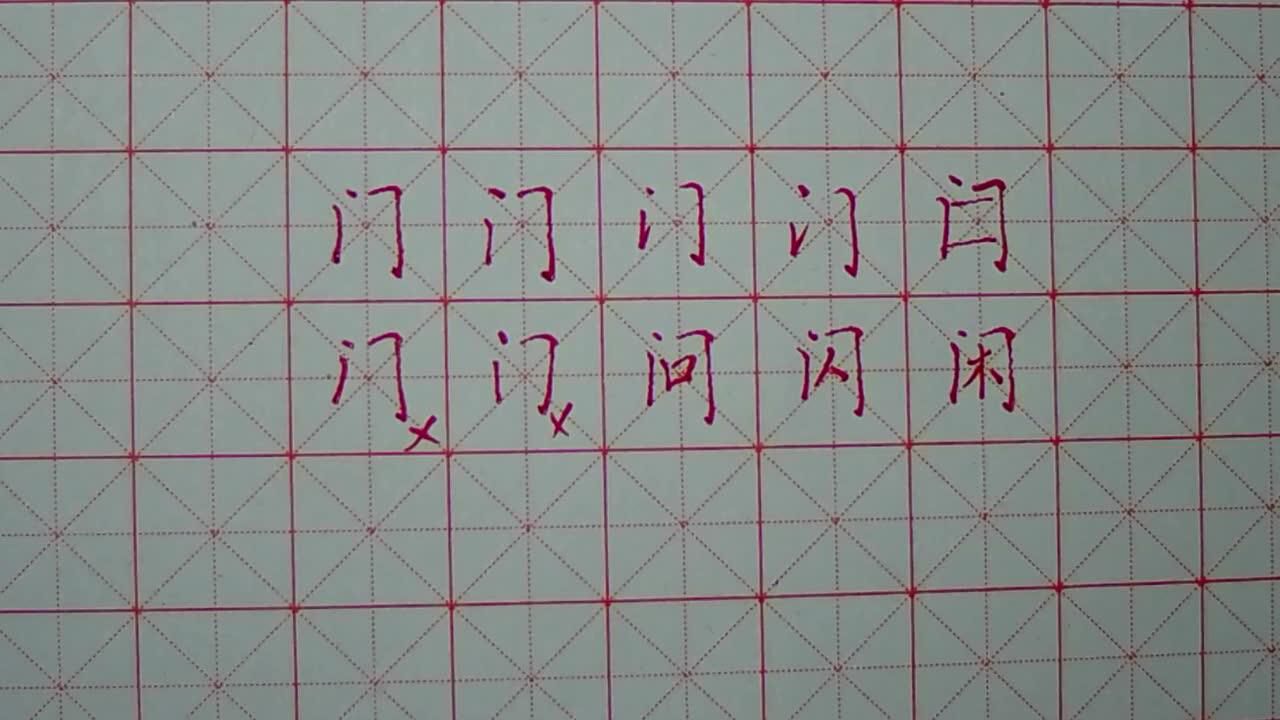 门 门 门 门 闩
门 × 门 × 问 闪 闲